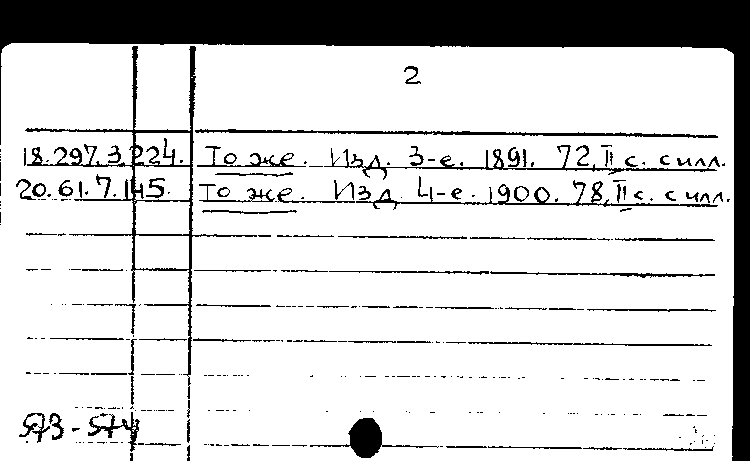 2
18.297.3.224. То же. Изд. 3-е. 1891. 72, II с. с илл.
20.61.7.145. То же. Изд 4-е. 1900. 78, II с. с илл.
573-574